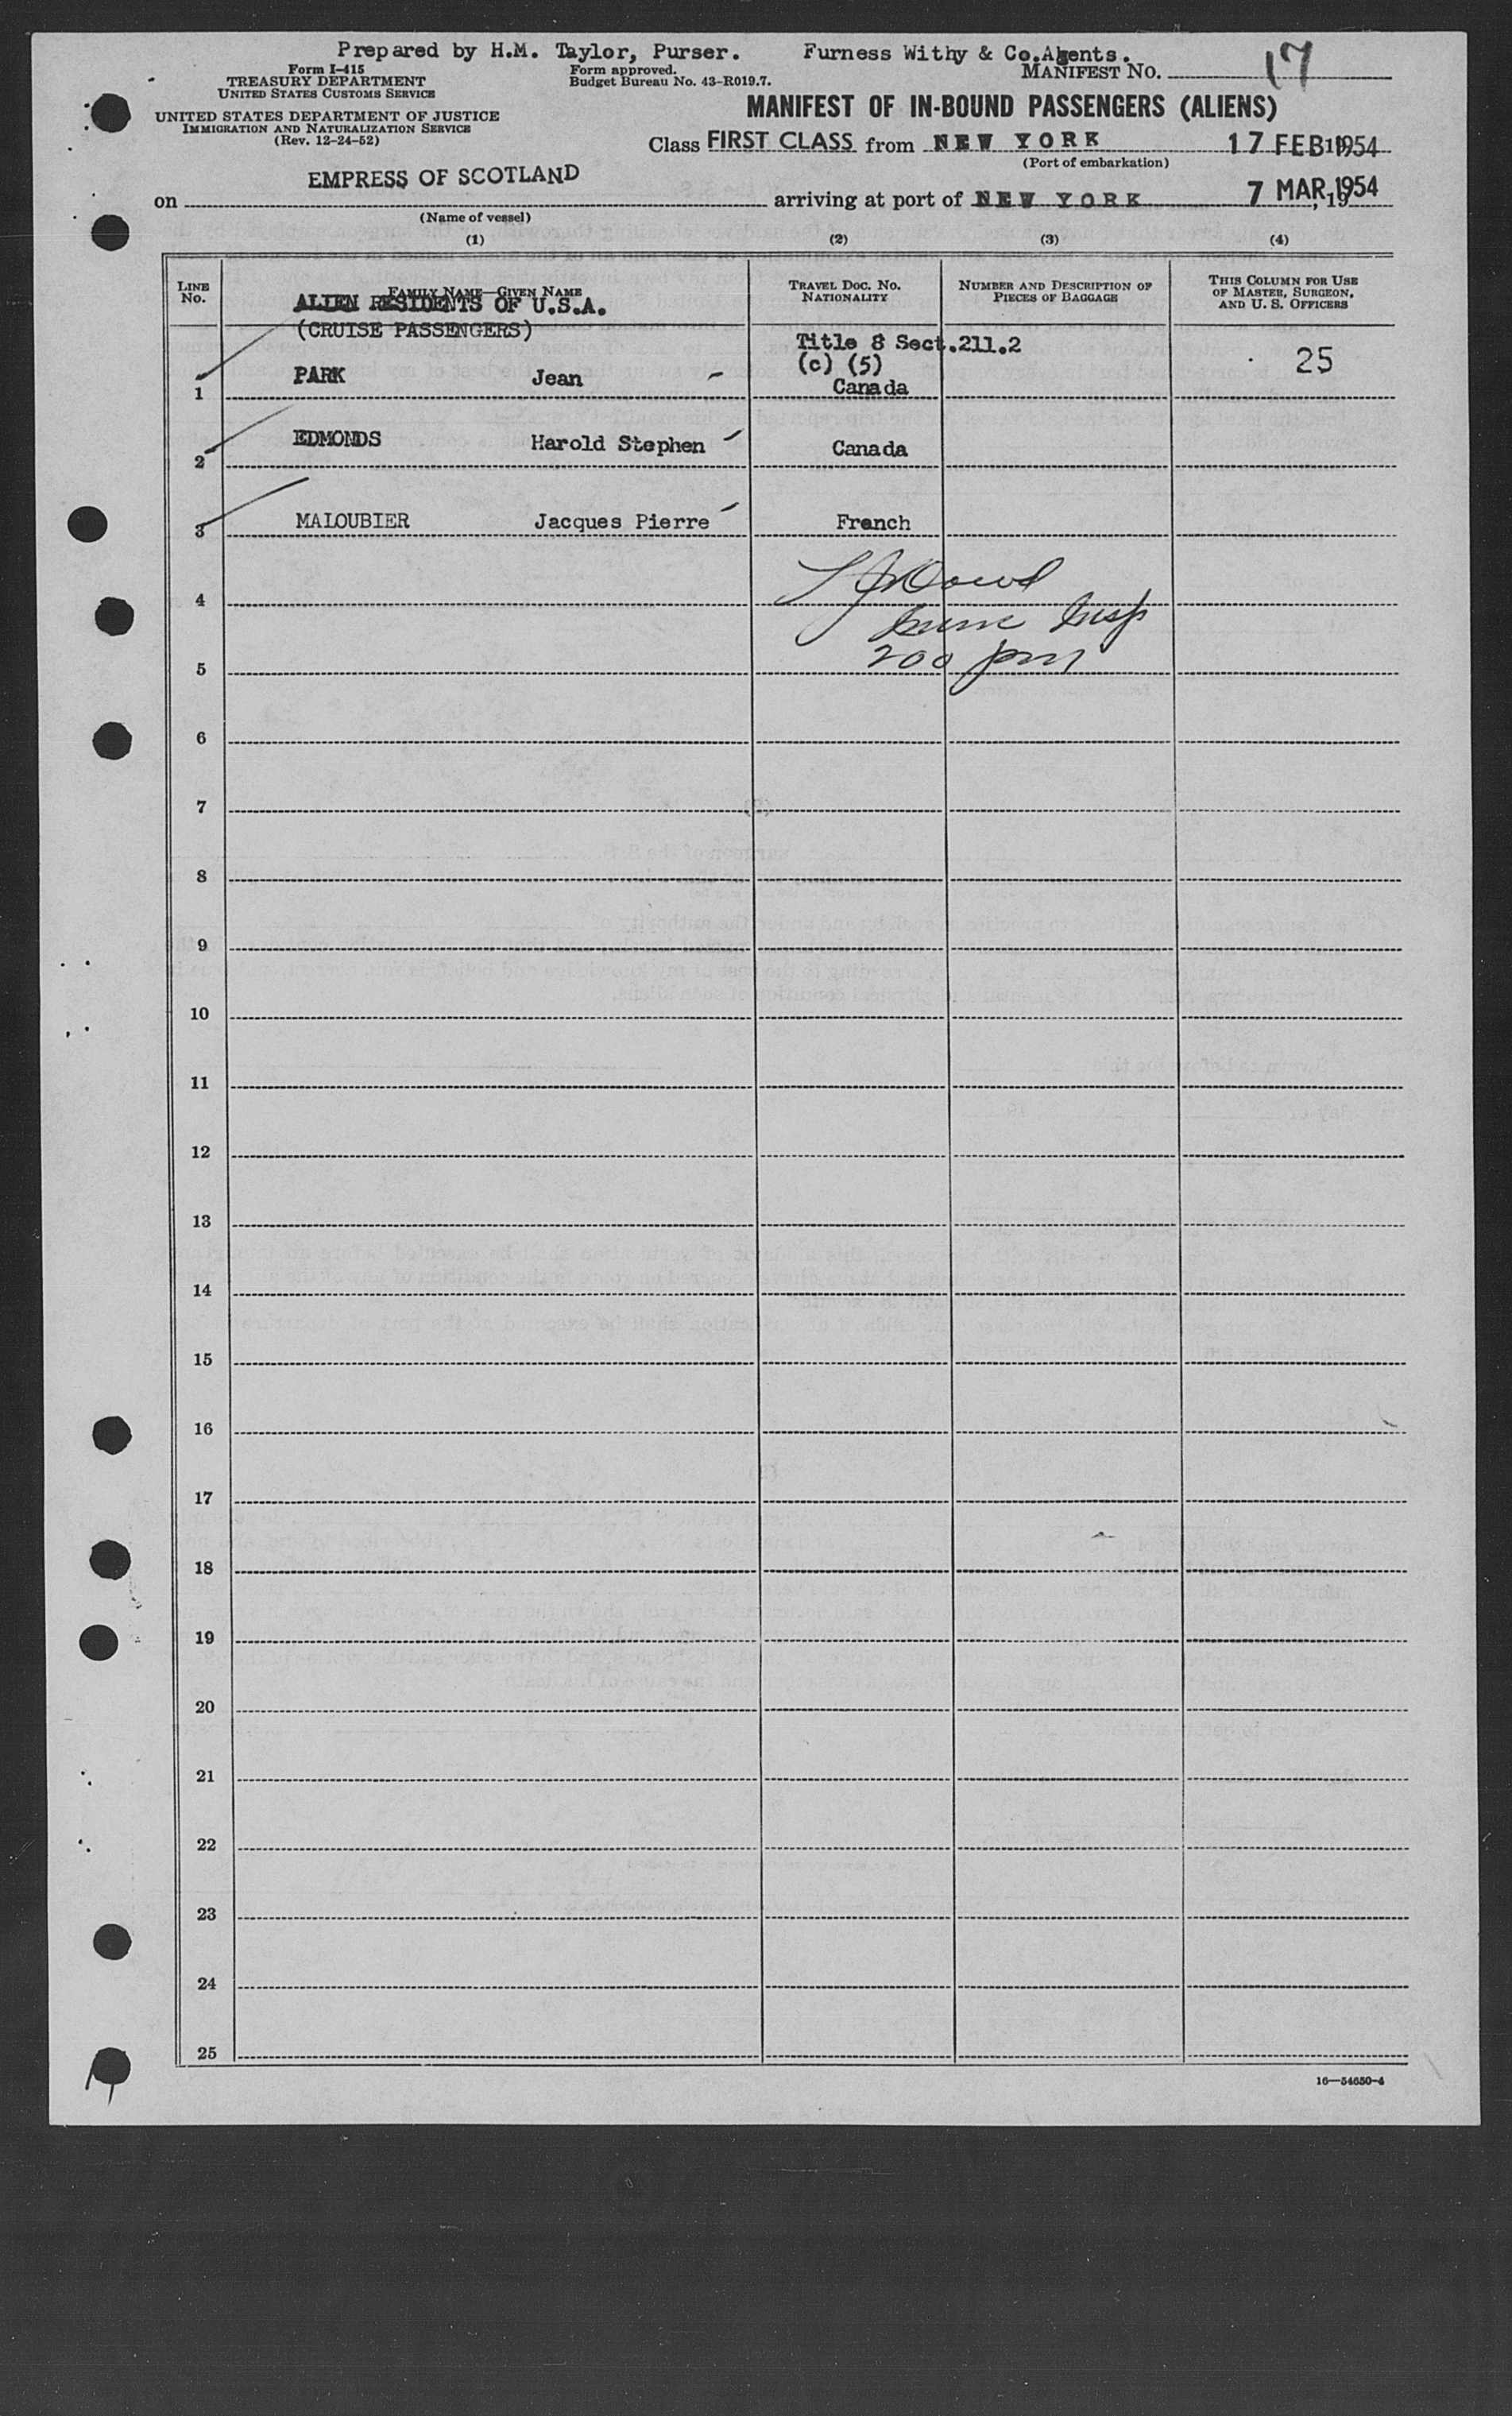 Prepared by H.M. Taylor, Purser. Furness Withy & Co.Agents.
Form I-415
TREASURY DEPARTMENT
UNITED STATES CUSTOMS SERVICE
Form approved.
Budget Bureau No. 43-R019.7.
MANIFEST NO. 17
UNITED STATES DEPARTMENT OF JUSTICE
IMMIGRATION AND NATURALIZATION SERVICE
(Rev. 12-24-52)
MANIFEST OF IN-BOUND PASSENGERS (ALIENS)
Class FIRST CLASS from NEW YORK 17 FEB 1954
(Port of embarkation)
on EMPRESS OF SCOTLAND arriving at port of NEW YORK 7 MAR, 1954
(Name of vessel)
(1) (2) (3) (4)
LINE NO.
FAMILY NAME—GIVEN NAME
TRAVEL DOC. NO.
NATIONALITY
NUMBER AND DESCRIPTION OF
PIECES OF BAGGAGE
THIS COLUMN FOR USE
OF MASTER, SURGEON,
AND U. S. OFFICERS
ALIEN RESIDENTS OF U.S.A.
(CRUISE PASSENGERS)
Title 8 Sect.211.2
(c) (5)
25
1 PARK Jean Canada
2 EDMONDS Harold Stephen Canada
3 MALOUBIER Jacques Pierre French
4
Imm Insp
5
200 pm
6
7
8
9
10
11
12
13
14
15
16
17
18
19
20
21
22
23
24
25
16—54650-4